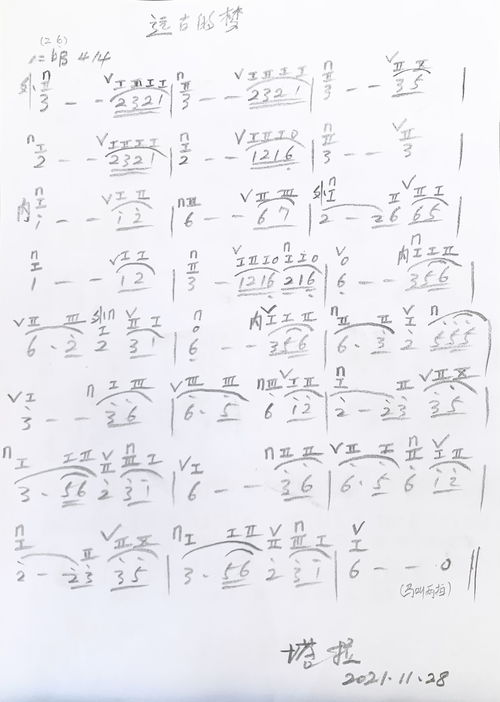 远古的梦
(26)
1=bB 4/4
外 3 - - 2321 | 3 - - 2321 | 3 - - 35 |
2 - - 2321 | 2 - - 1216 | 3 - - 3 |
内 1 - - 12 | 6 - - 67 | 外 2 - 26 65 |
1 - - 12 | 3 - 1216 216 | 6 - - 内 356 |
6· 2 外 2 31 | 6 - - 内 356 | 6· 3 2 555 |
3 - - 36 | 6· 5 6 12 | 2 - 23 35 |
3· 56 2 31 | 6 - - 36 | 6· 5 6 12 |
2 - 23 35 | 3· 56 2 31 | 6 - - 0 ||
(马叫两拍)
塔拉
2021.11.28